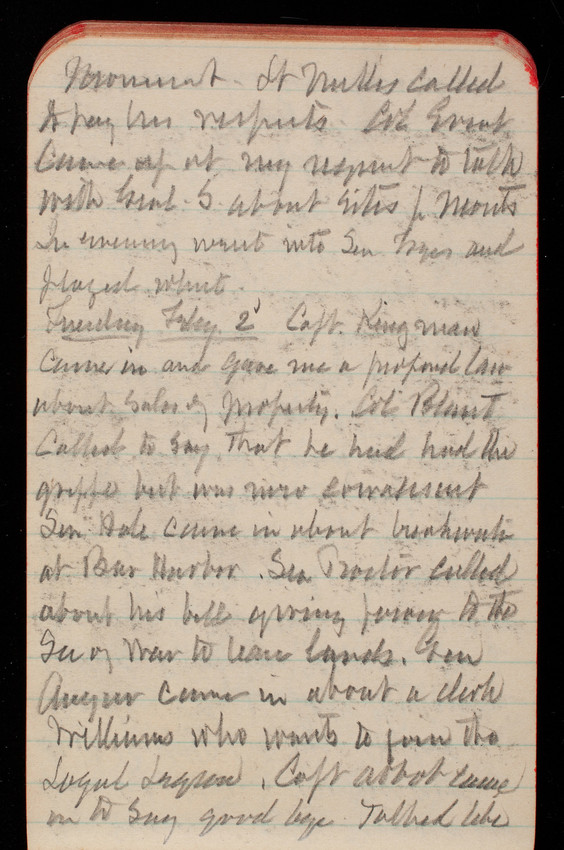 Monument. Lt Mills called
to pay his respects. Col Ernst
came up at my request to talk
with Genl. S. about sites for Monts
In evening went into Sen and
played whist.
Tuesday Feby. 2d Capt. Kingman
came in and gave me a proposed law
about sales of property. Col Blunt
called to say that he had had the
grippe but was now convalescent
Sen Hale came in about breakwater
at Bar Harbor. Sen Proctor called
about his bill giving power to the
Sec of War to lease lands. Gen
Augur came in about a clerk
Williams who wants to join the
Loyal Legion. Capt Abbot came
in to say good bye. Talked like